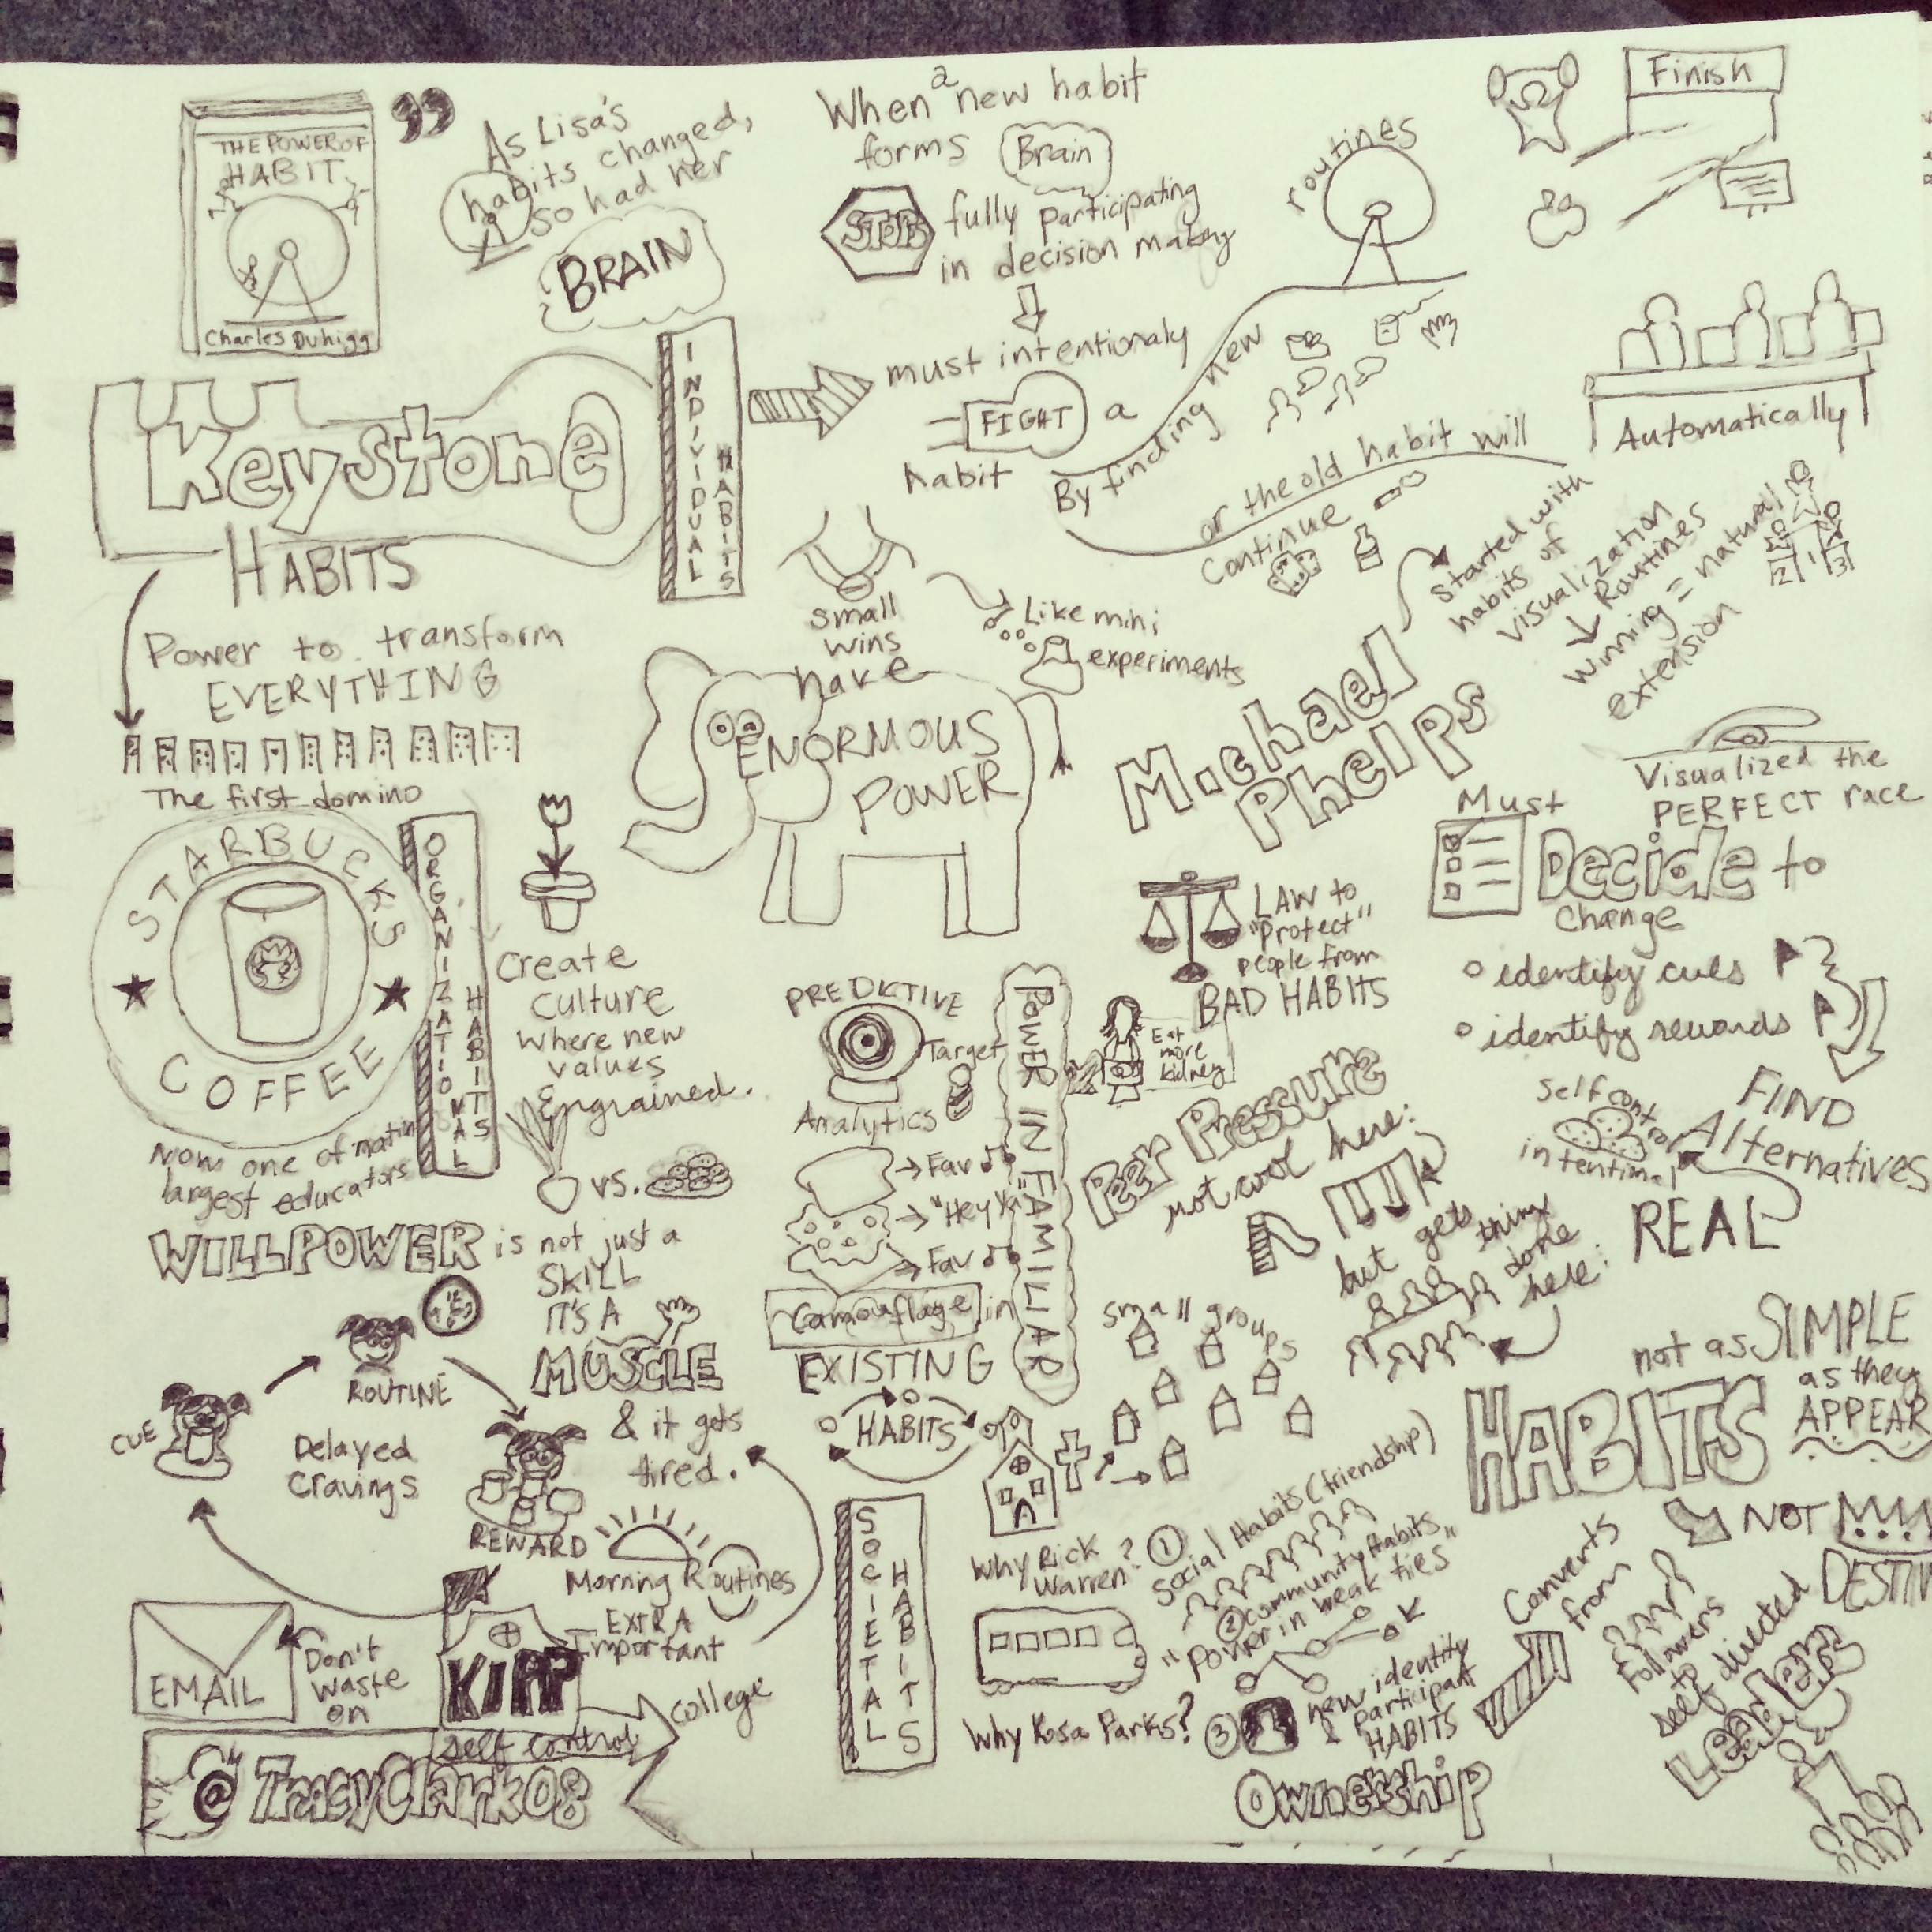 THE POWER OF
HABIT
Charles Duhigg
As Lisa's
habits changed,
so had her
BRAIN
When a new habit
forms Brain
STOPS fully participating
in decision making
must intentionaly
FIGHT a
habit
By finding new
routines
Finish
or the old habit will
continue
Automatically
Keystone
HABITS
INDIVIDUAL
HABITS
Power to transform
EVERYTHING
The first domino
small
wins
have
ENORMOUS
POWER
Like mini
experiments
Michael
Phelps
Started with
habits of
visualization
Routines
winning = natural
extension
2 1 3
Visualized the
PERFECT race
STARBUCKS
COFFEE
ORGANIZATIONAL
HABITS
Now one of nation
largest educators
Create
culture
where new
values
Engrained.
vs.
WILLPOWER is not just a
SKILL
IT'S A
MUSCLE
& it gets
tired.
CUE
ROUTINE
REWARD
Delayed
Cravings
Morning Routines
EXTRA
Important
EMAIL
Don't
waste
on
KIPP
self control
college
@TracyClark08
PREDICTIVE
Target
Analytics
→ Fav
→ "Hey Ya"
→ Fav
Camouflage in
EXISTING
HABITS
POWER IN FAMILIAR
LAW to
"Protect"
people from
BAD HABITS
Eat
more
kidney
Peer Pressure
not cool here:
but gets things
done
here:
Must
Decide to
change
identify cues
identify rewards
FIND
Alternatives
Self control
intentional
REAL
small groups
SOCIETAL
HABITS
Why Rick
Warren?
Why Rosa Parks?
① Social Habits (friendship)
② community Habits
"Power in weak ties"
③ new identity
& participant
HABITS
Ownership
HABITS
not as SIMPLE
as they
APPEAR
NOT
Converts
from
Followers
to
self directed
Leaders